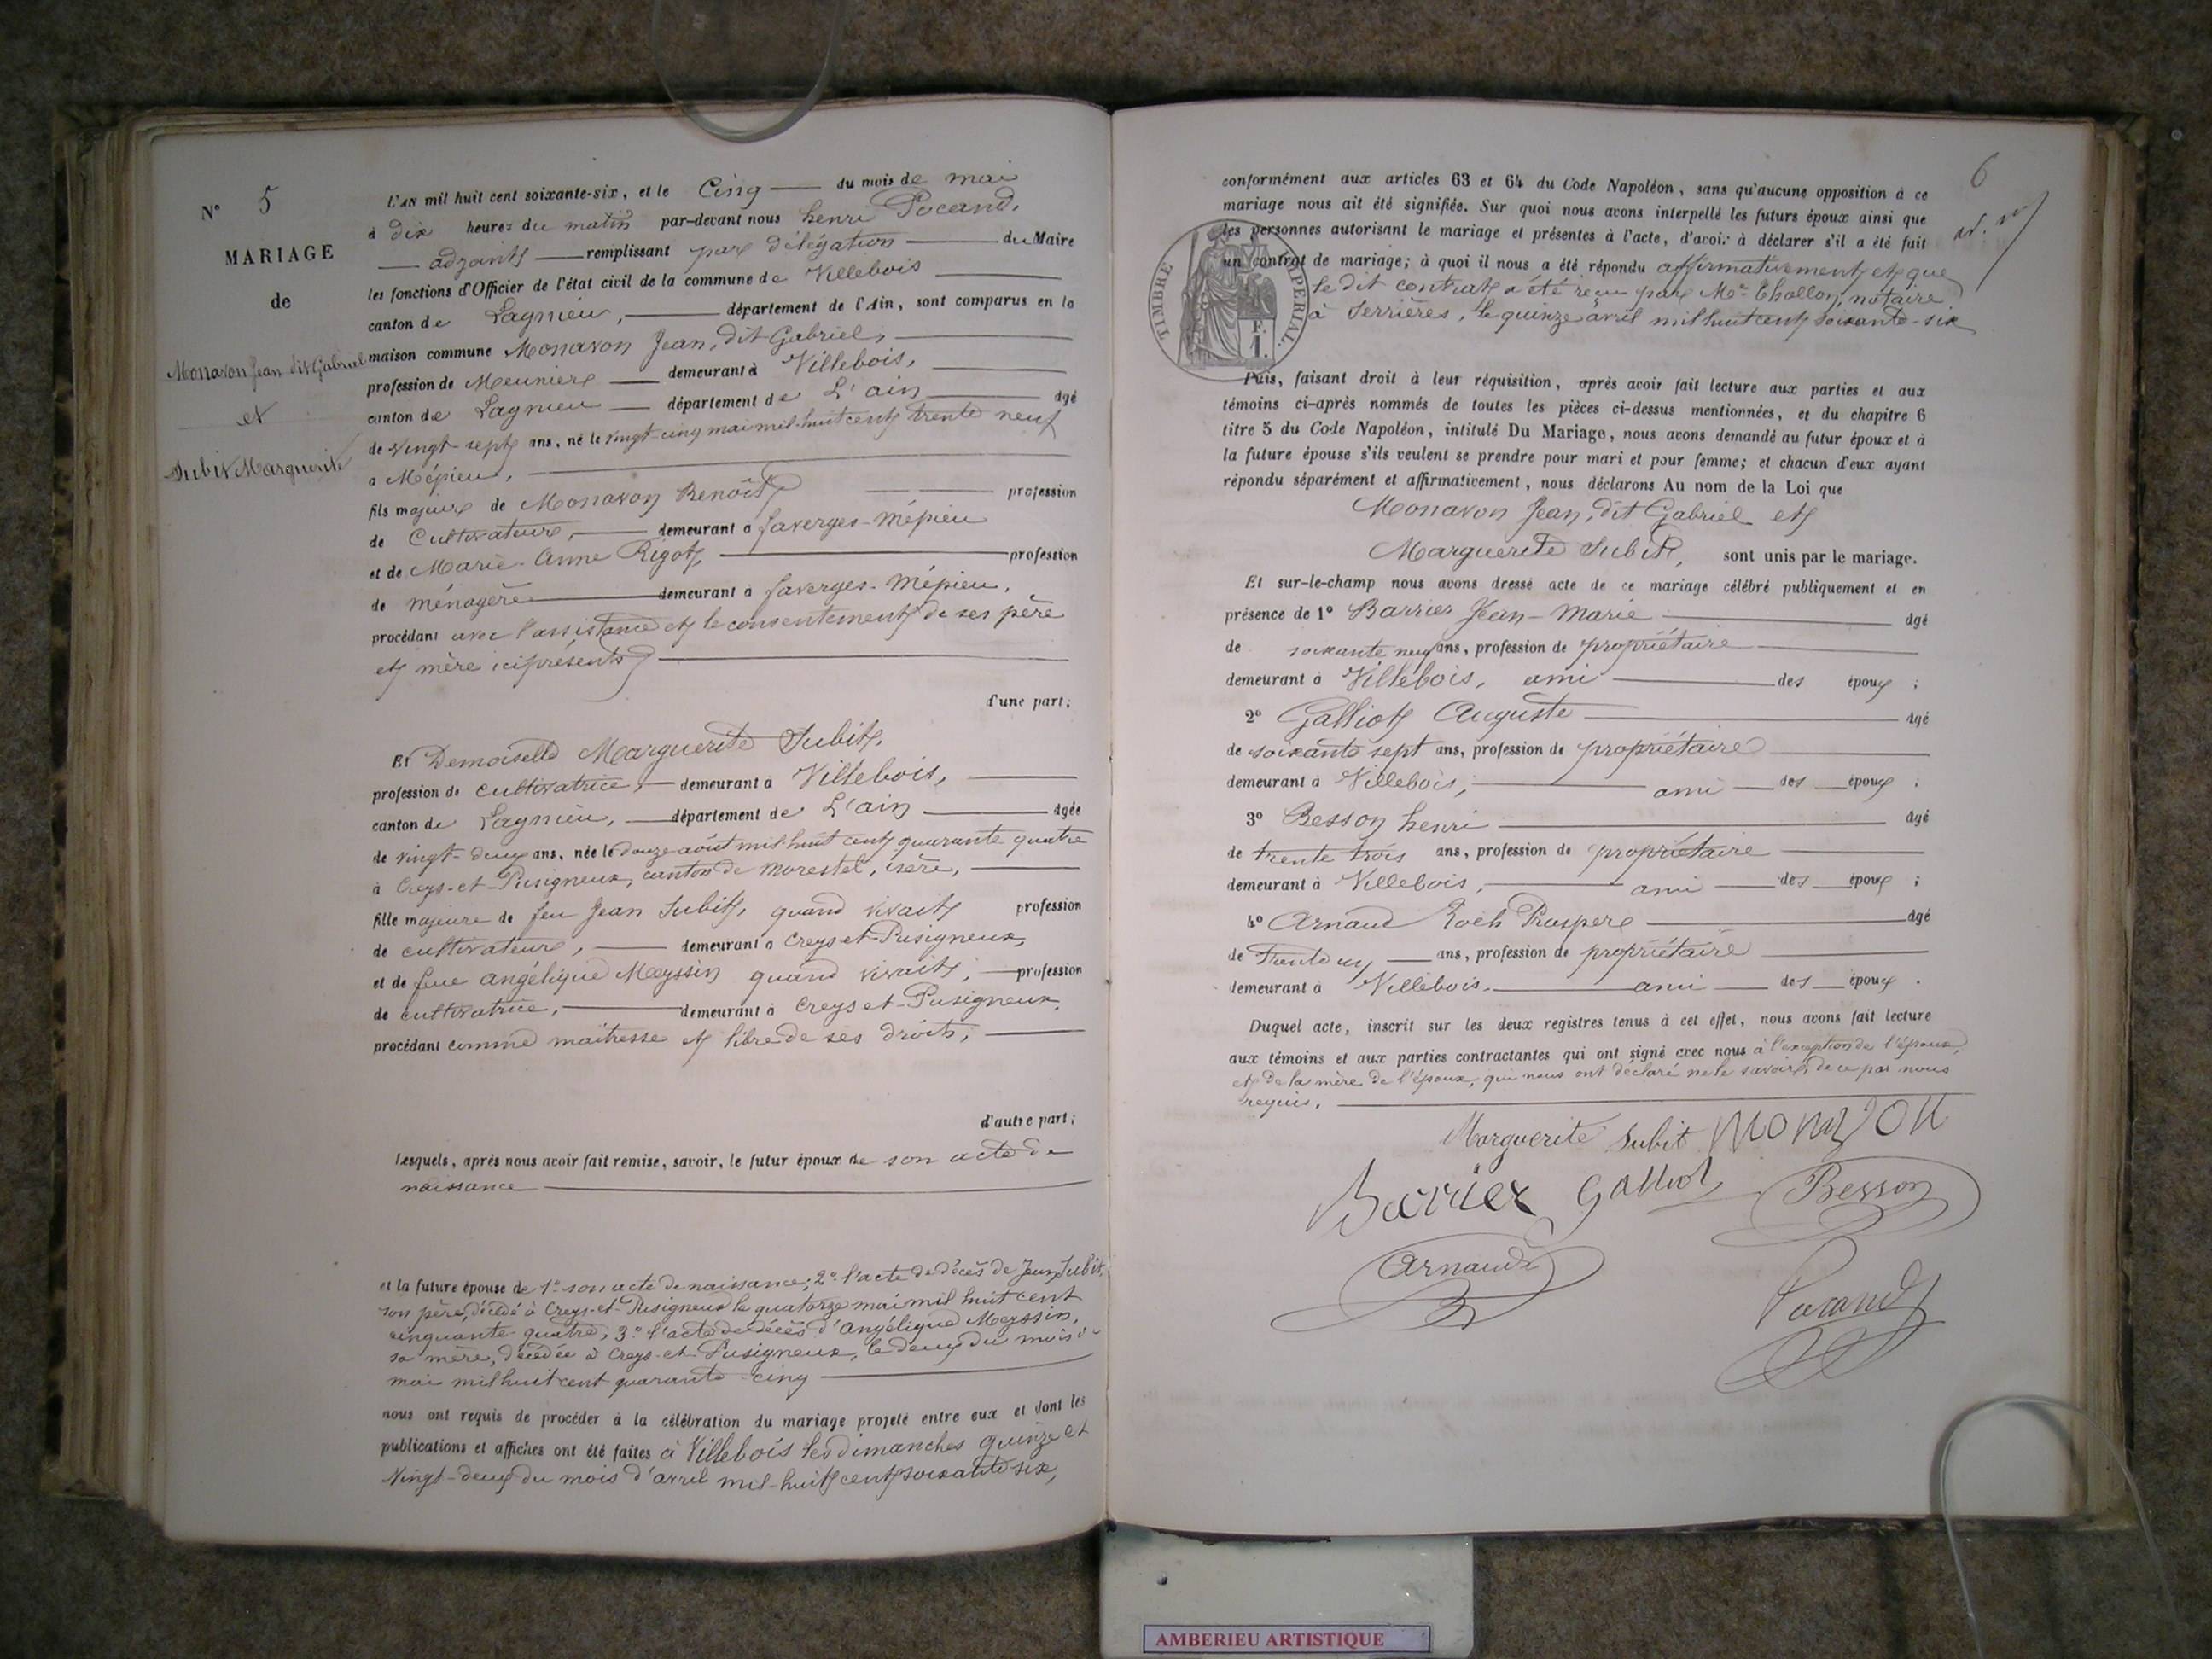 N° 5
MARIAGE
de
Monavon Jean dit Gabriel
et
Subit Marguerite
L'AN mil huit cent soixante-six, et le Cinq du mois de mai
à dix heures du matin par-devant nous henri Pocand,
adjoint remplissant par délégation du Maire
les fonctions d'Officier de l'état civil de la commune de Villebois
canton de Lagnieu, département de l'Ain, sont comparus en la
maison commune Monavon Jean, dit Gabriel,
profession de Meunier demeurant à Villebois,
canton de Lagnieu département de L'ain âgé
de vingt-sept ans, né le vingt-cinq mai mil-huit cent trente neuf
a Mépieu,
fils majeur de Monavon Benoît profession
de Cultivateur, demeurant a faverges-Mépieu
et de Marie-Anne Rigot, profession
de ménagère demeurant à faverges-Mépieu,
procédant avec l'assistance et le consentement de ses père
et mère ici présents
d'une part;
Et Demoiselle Marguerite Subit,
profession de cultivatrice, demeurant à Villebois,
canton de Lagnieu, département de L'ain âgée
de vingt-deux ans, née le douze août mil huit cent quarante quatre
à Creys-et-Pusigneux, canton de Morestel, isère,
fille majeure de feu Jean Subit, quand vivait profession
de cultivateur, demeurant a Creys et-Pusigneux,
et de feue angélique Meyssin quand vivait, profession
de cultivatrice, demeurant à Creys et-Pusigneux,
procédant comme maîtresse et libre de ses droits;
d'autre part;
Lesquels, après nous avoir fait remise, savoir, le futur époux de son acte de
naissance
et la future épouse de 1° son acte de naissance; 2° l'acte de décès de Jean Subit,
son père, décédé à Creys-et-Pusigneux le quatorze mai mil huit cent
cinquante-quatre, 3° l'acte de décès d'Angélique Meyssin,
sa mère, décédée à Creys-et-Pusigneux, le deux du mois de
mai mil huit cent quarante-cinq
nous ont requis de procéder à la célébration du mariage projeté entre eux et dont les
publications et affiches ont été faites à Villebois les dimanches quinze et
Vingt-deux du mois d'avril mil-huit cent soixante six,
6
conformément aux articles 63 et 64 du Code Napoléon, sans qu'aucune opposition à ce
mariage nous ait été signifiée. Sur quoi nous avons interpellé les futurs époux ainsi que
les personnes autorisant le mariage et présentes à l'acte, d'avoir à déclarer s'il a été fait
un contrat de mariage; à quoi il nous a été répondu affirmativement et que
le dit contrat a été reçu par Me Thollon, notaire
à Serrières, le quinze avril mil huit cent soixante-six
TIMBRE IMPERIAL
F.
1.
Puis, faisant droit à leur réquisition, après avoir fait lecture aux parties et aux
témoins ci-après nommés de toutes les pièces ci-dessus mentionnées, et du chapitre 6
titre 5 du Code Napoléon, intitulé Du Mariage, nous avons demandé au futur époux et à
la future épouse s'ils veulent se prendre pour mari et pour femme; et chacun d'eux ayant
répondu séparément et affirmativement, nous déclarons Au nom de la Loi que
Monavon Jean, dit Gabriel et
Marguerite Subit, sont unis par le mariage.
Et sur-le-champ nous avons dressé acte de ce mariage célébré publiquement et en
présence de 1° Barrier Jean-Marie âgé
de soixante neuf ans, profession de propriétaire
demeurant à Villebois, ami des époux ;
2° Galliot Auguste âgé
de soixante sept ans, profession de propriétaire
demeurant à Villebois, ami des époux ;
3° Besson henri âgé
de trente trois ans, profession de propriétaire
demeurant à Villebois, ami des époux ;
4° Arnaud Roch Prospere âgé
de Trente un ans, profession de propriétaire
demeurant à Villebois, ami des époux .
Duquel acte, inscrit sur les deux registres tenus à cet effet, nous avons fait lecture
aux témoins et aux parties contractantes qui ont signé avec nous à l'exception de l'époux,
et de la mère de l'époux, qui nous ont déclaré ne le savoir, de ce par nous
requis.
Marguerite Subit Monavon
Barrier Galliot Besson
Arnaud
Pocand
AMBERIEU ARTISTIQUE